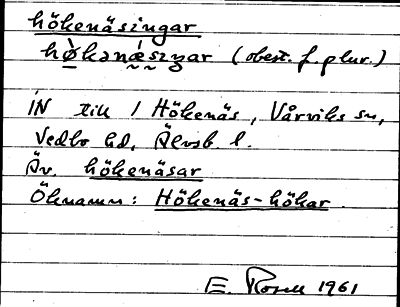 hökenäsingar
hø̀kənǽsıŋar (obest. f. plur.)
IN till 1 Hökenäs, Vårviks sn,
Vedbo hd, Älvsb l.
Äv. hökenäsar
Öknamn: Hökenäs-hökar.
E. Rosell 1961